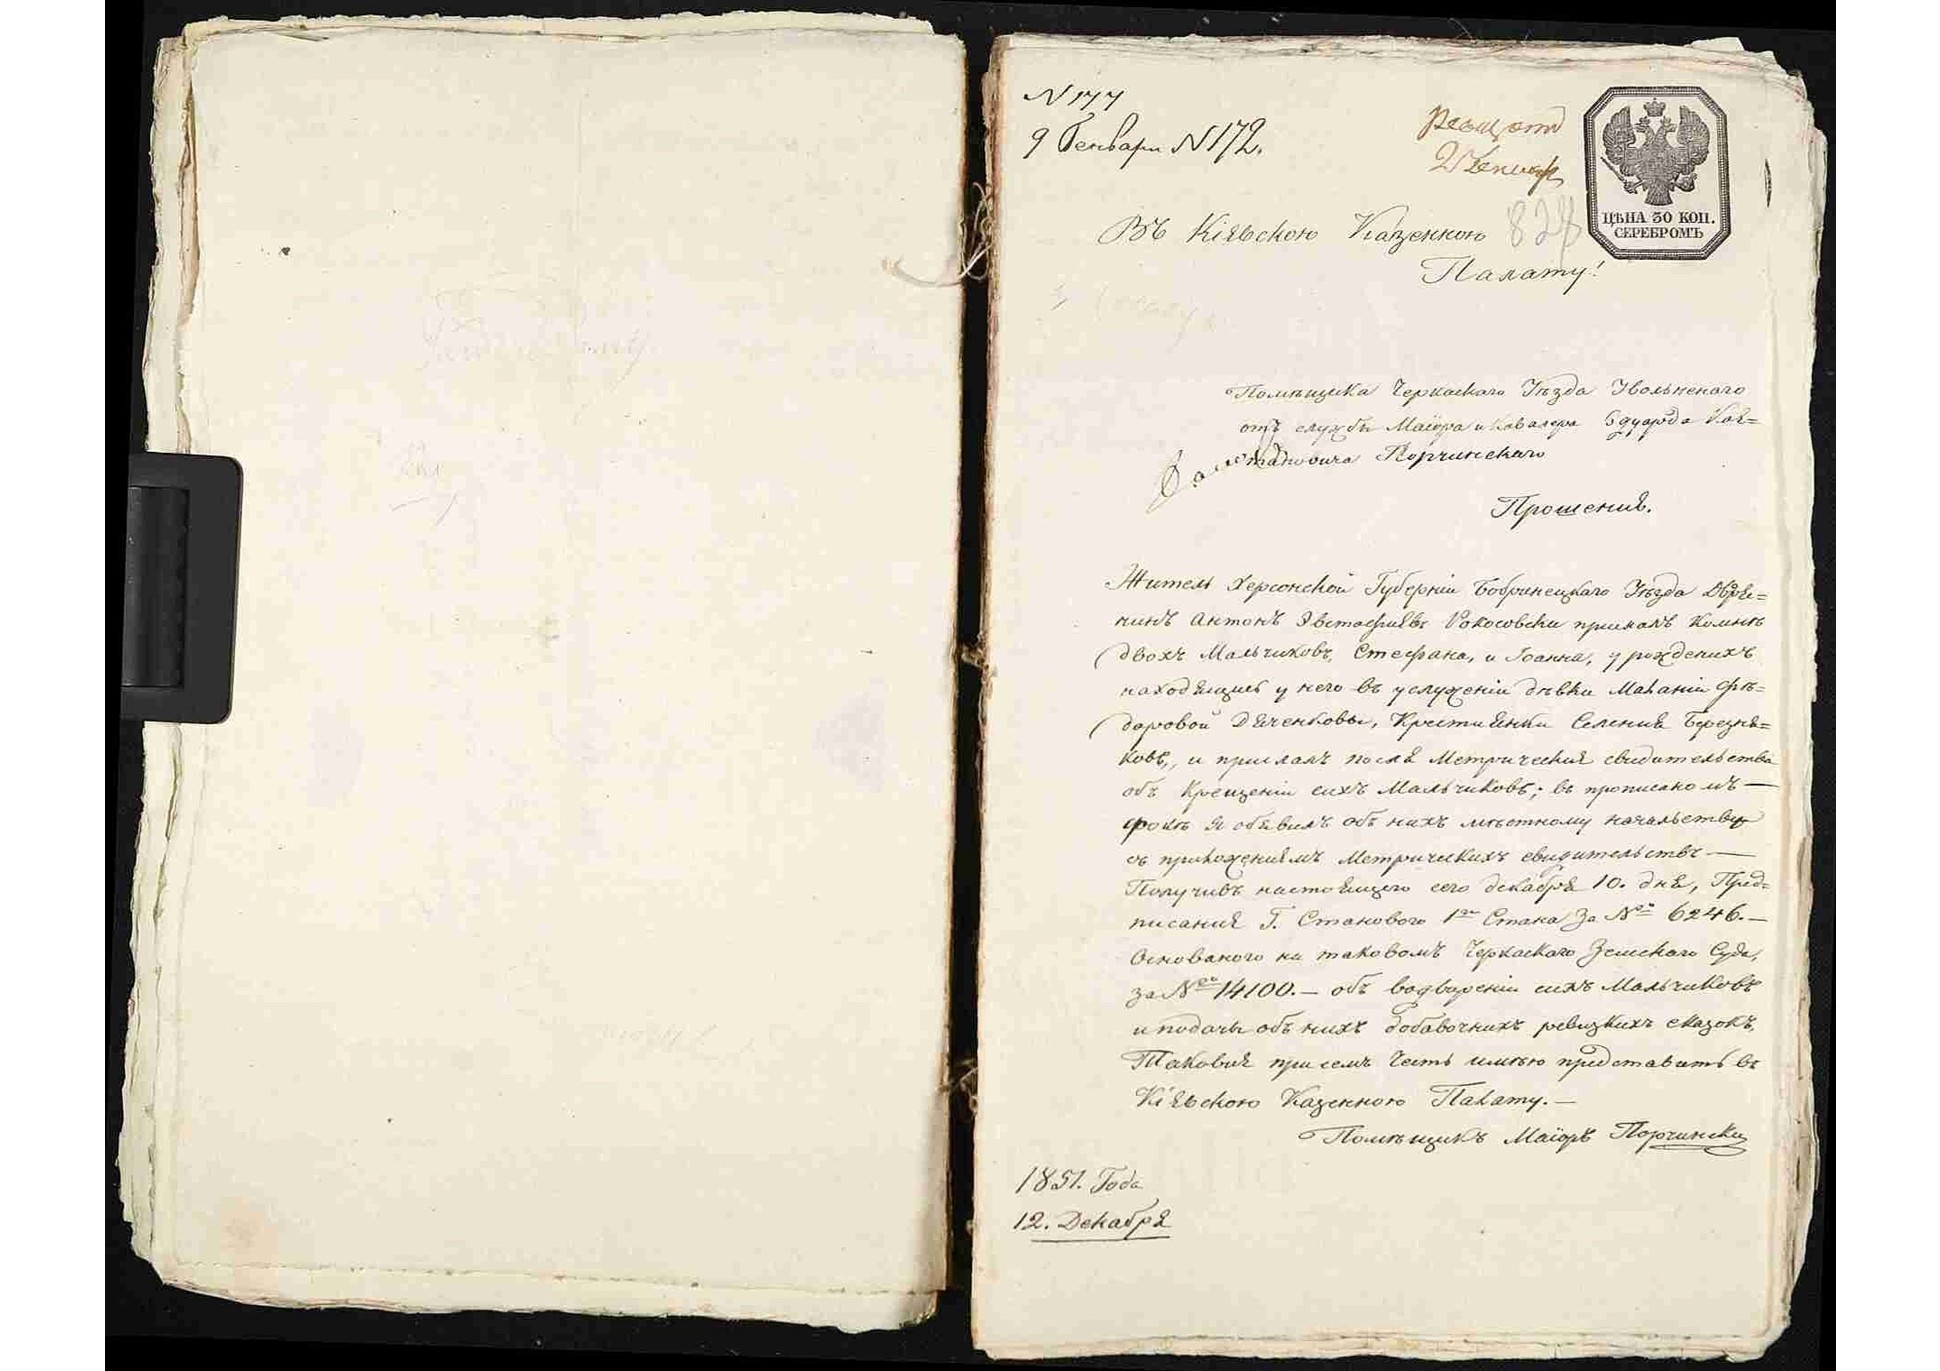 N 177
9 Генваря N 172.
ЦѢНА 30 КОП.
СЕРЕБРОМЪ
828
Въ Кіявскою Казенною
Палату!
Помѣщика Черкаскаго Уѣзда Уволненаго
отъ службы Маіора и Кавалера Едуарда Кая=
тановича Порчинскаго
Прошения.
Житель Херсонской Губерніи Бобринецкаго Уѣзда Дворя=
нинъ Антонъ Эвстафіявъ Рокосовски прислалъ Комнѣ
двохъ Мальчиковъ, Стефана, и Іоанна, урожденихъ
находящись у него въ услуженіи дѣвки Маланіи Фѣ=
доровой Дяченковы, Крестиянки Селения Березня=
ковъ, и прислалъ посля Метрическия свидительства
объ Крещеніи сихъ Мальчиковъ; въ прописаномъ —
срокѣ я обявилъ объ нихъ мѣстному начальству
съ приложениямъ Метрическихъ свидительствъ —
Получивъ настоящего сего декабря 10. дня, Пред=
писания Г. Становаго 1го Стана За №мъ 6246. —
Основаного на таковомъ Черкаскаго Земскаго Суда,
за №мъ 14100. — объ водвореніи сихъ Мальчиковъ
и подачы объ нихъ добавочнихъ ревизкихъ сказокъ,
Таковия при семъ Честь имѣю представить въ
Кіявскою Казенною Палату. —
Помѣщикъ Маіоръ Порчински
1851. Года
12. Декабря